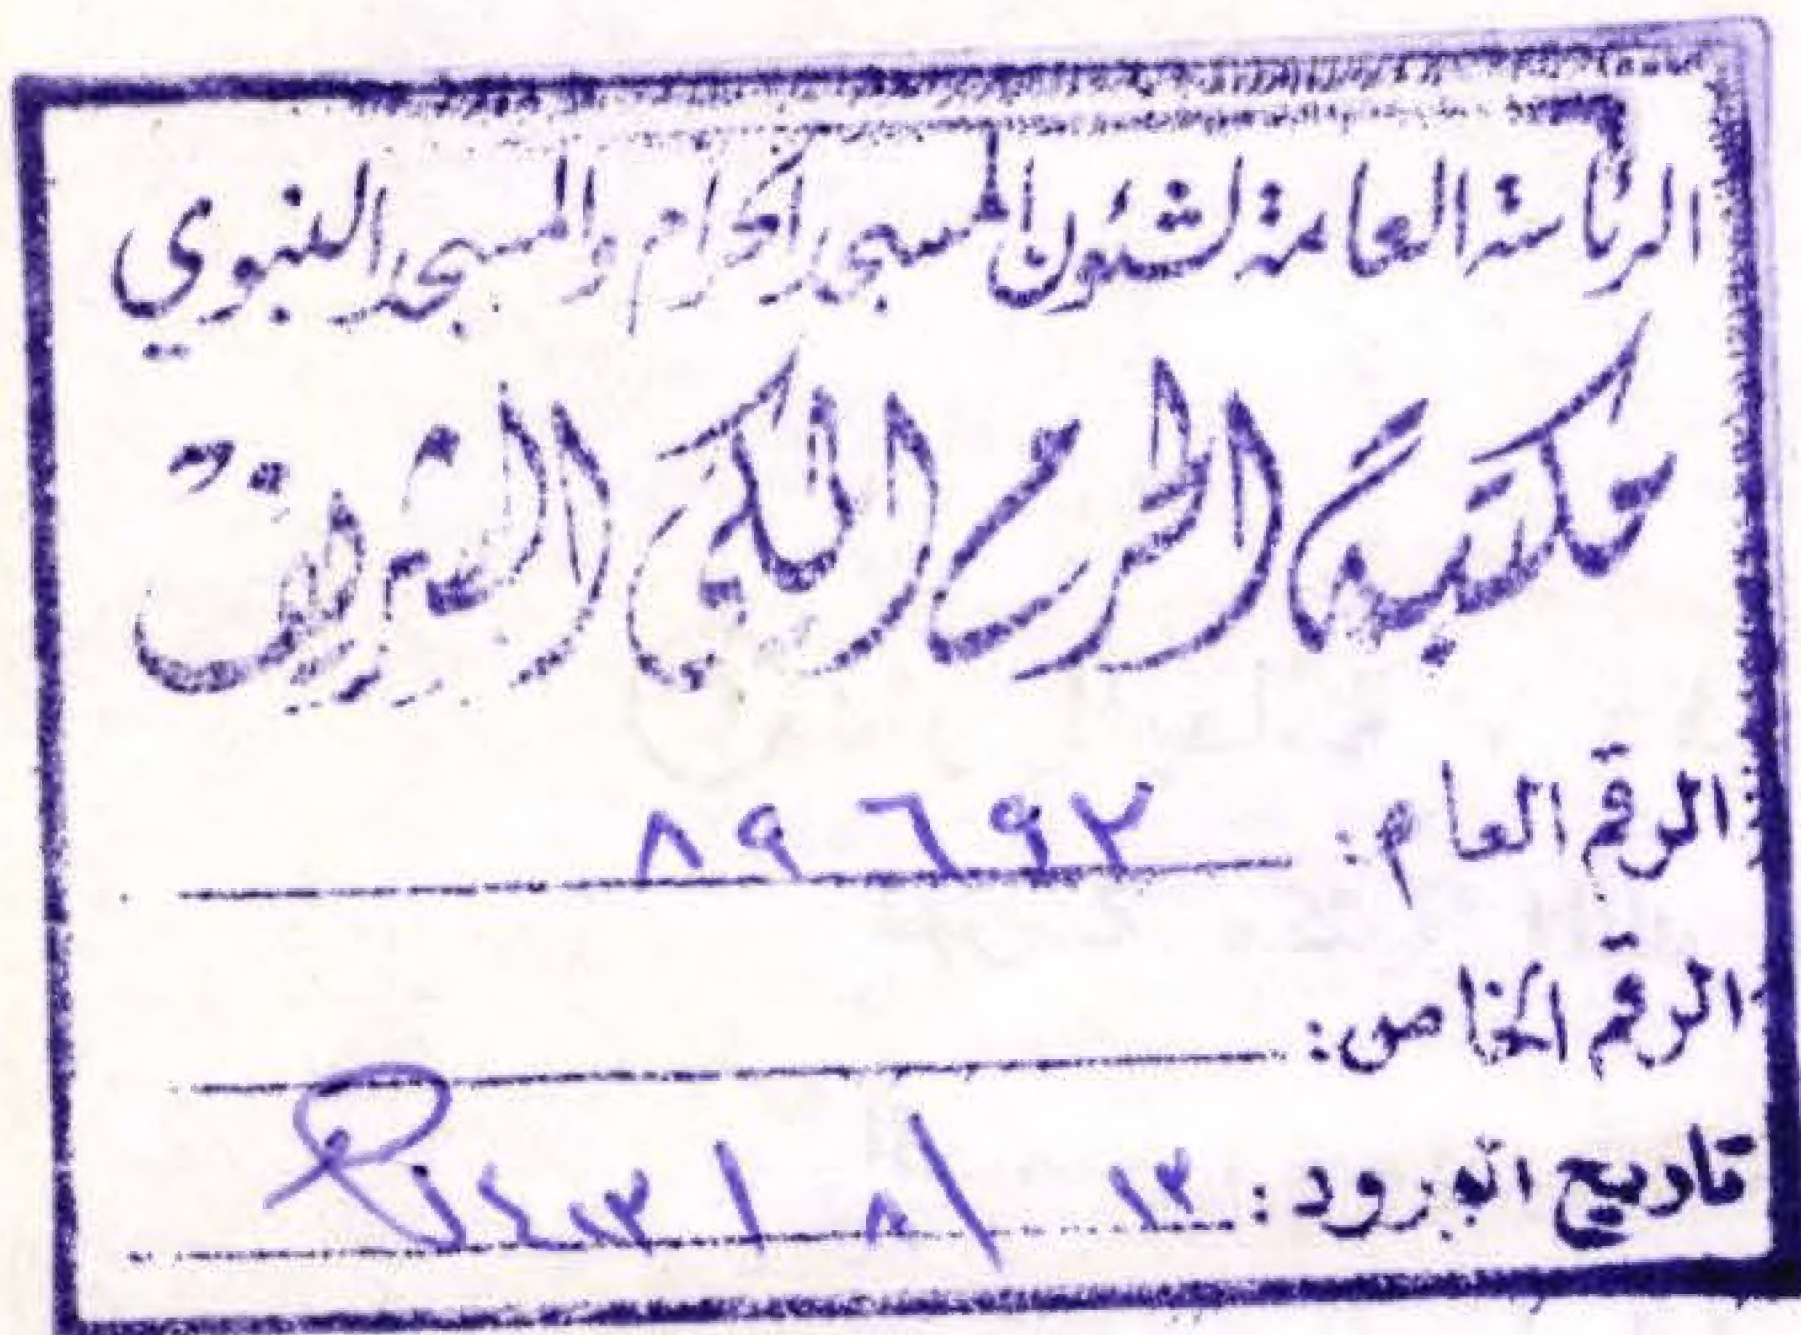 الرئاسة العامة لشئون المسجد الحرام والمسجد النبوي
مكتبة الحرم المكي الشريف
الرقم العام: ٨٩٦٩٢
الرقم الخاص:
تاريخ الورود: ١٣ / ٨ / ١٤١٣